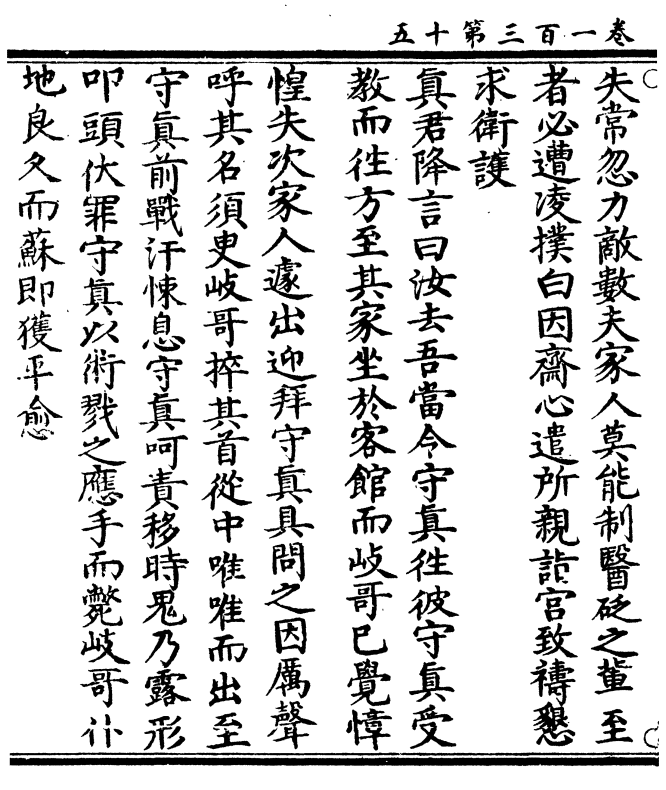 卷一百三第十五
失常忽力敵數夫家人莫能制醫砭之輩至
者必遭凌撲白因齋心遣所親詣宮致禱懇
求衛護
真君降言曰汝去吾當令守真徃彼守真受
教而徃方至其家坐於客館而岐哥已覺慞
惶失次家人遽出迎拜守真具問之因厲聲
呼其名須臾岐哥捽其首從中唯唯而出至
守真前戰汗悚息守真呵責移時鬼乃露形
叩頭伏罪守真以術戮之應手而斃岐哥仆
地良久而蘇即獲平愈